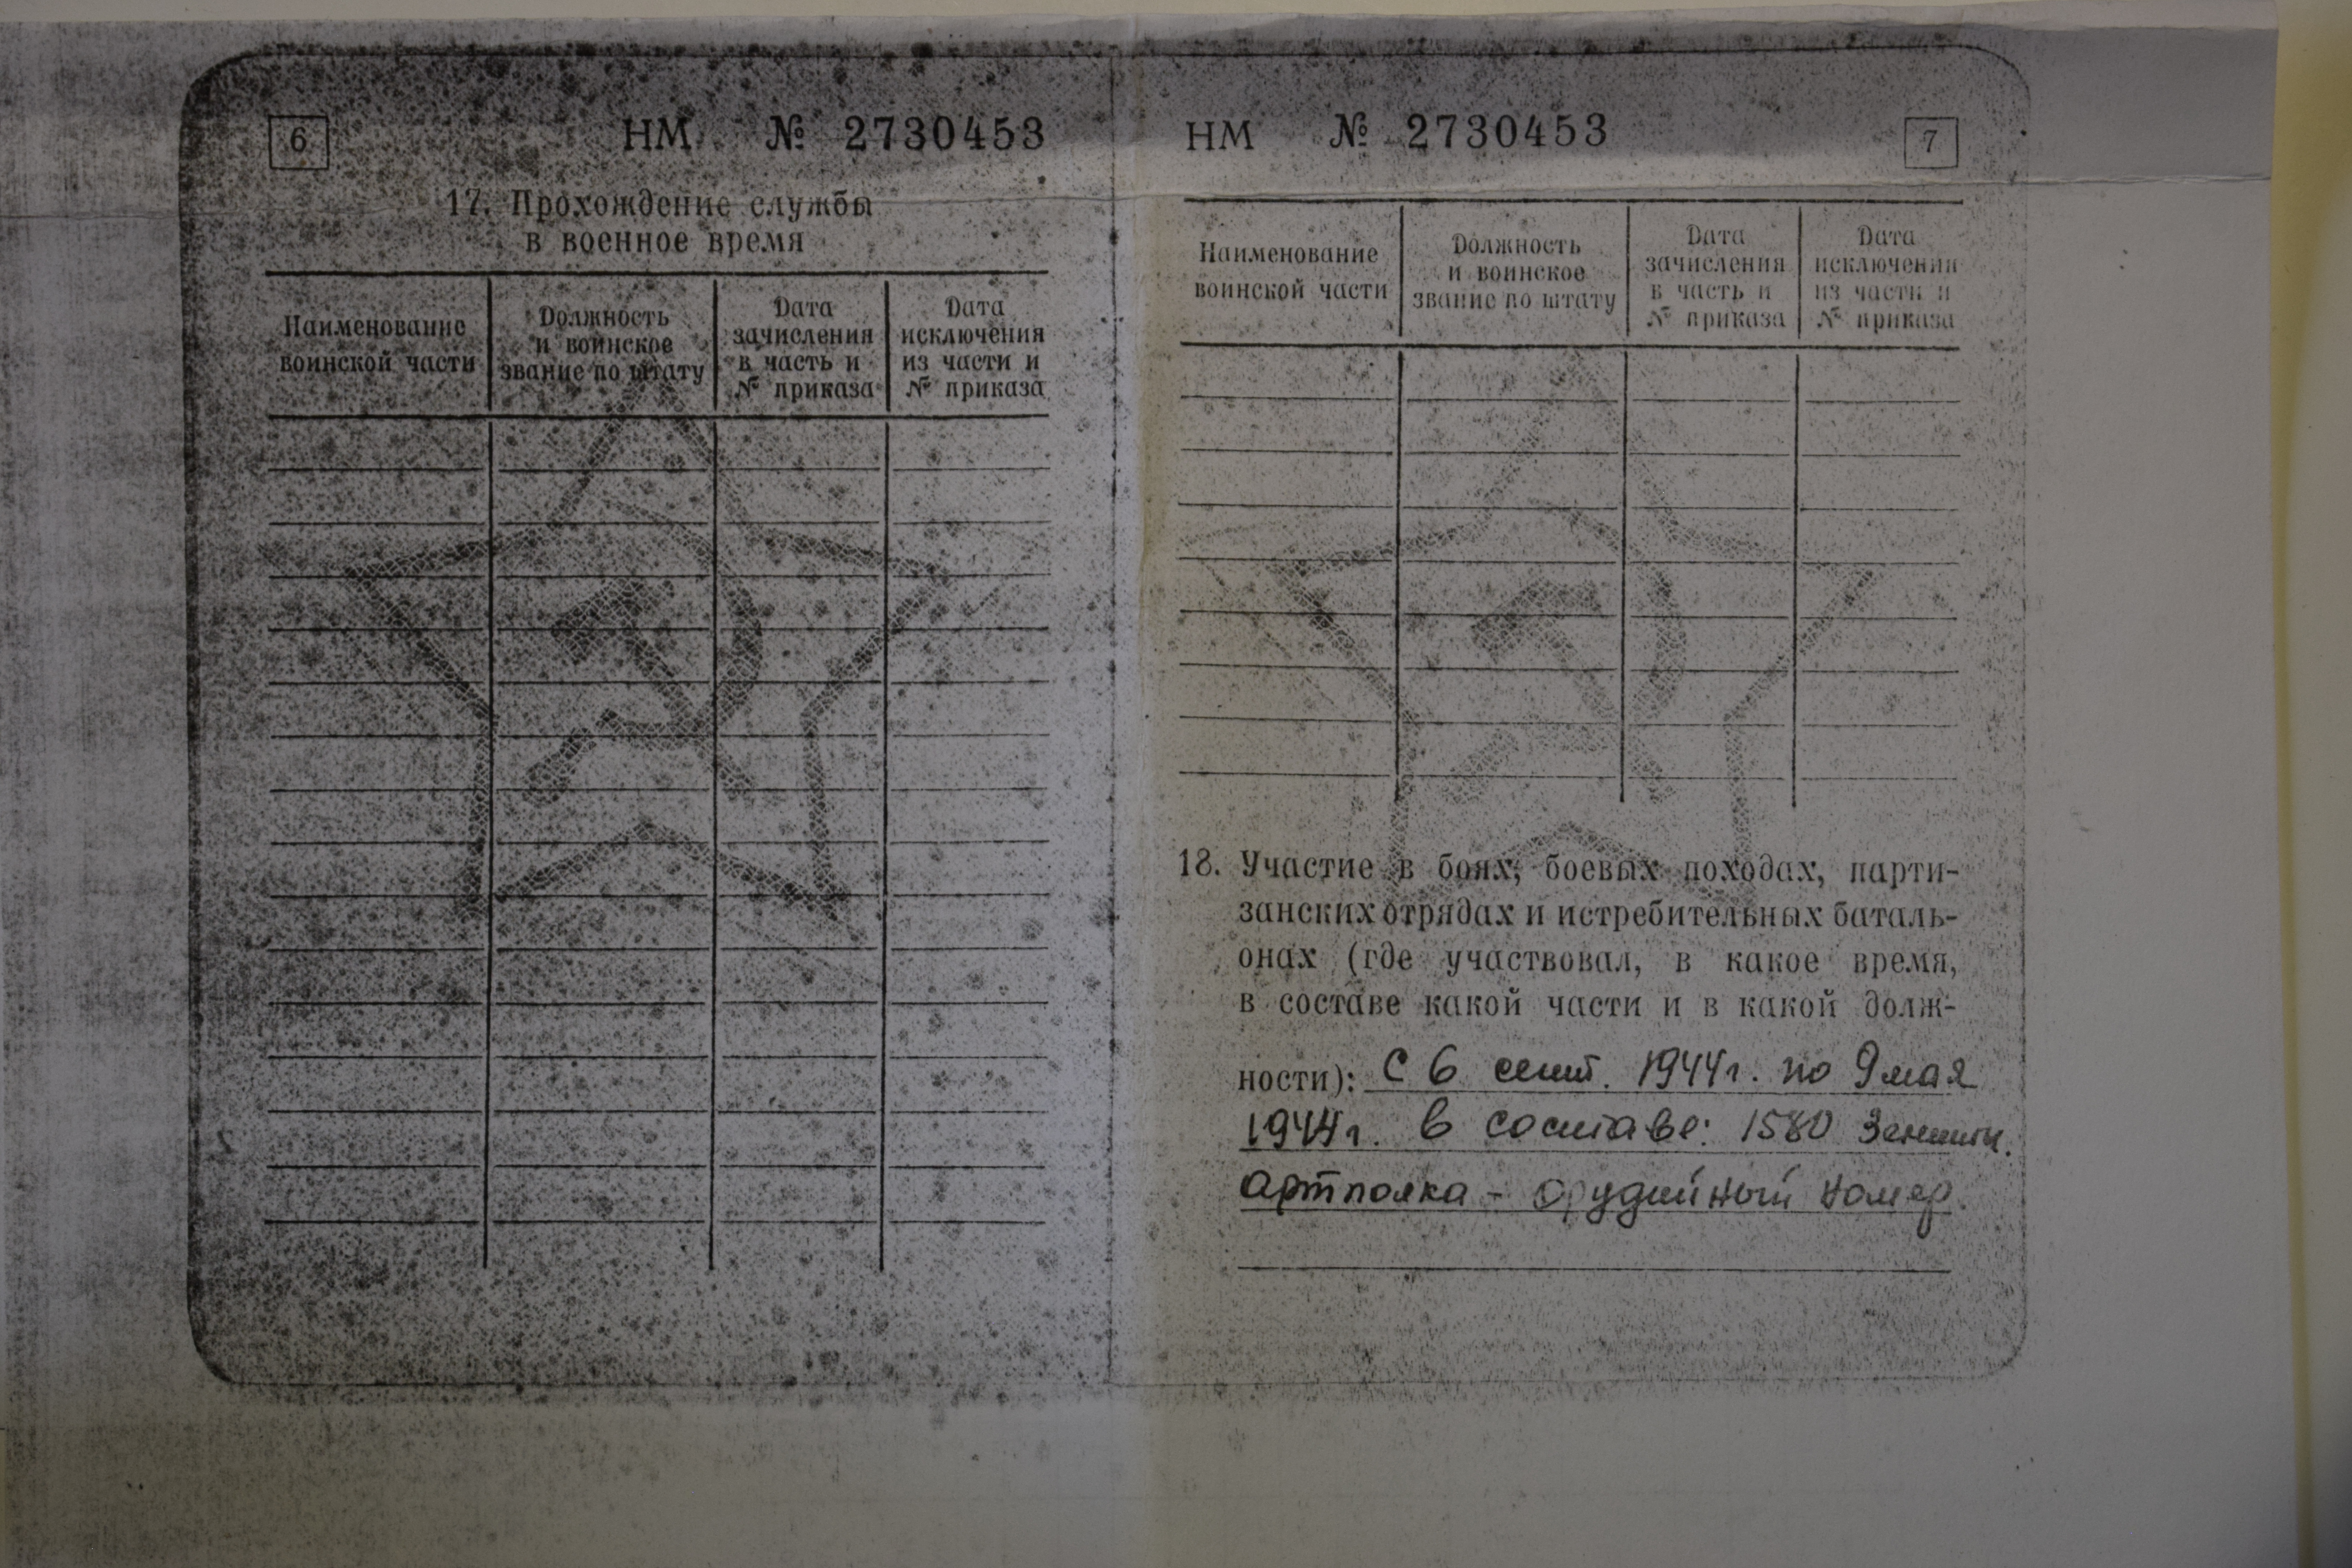 6
НМ № 2730453
17. Прохождение службы
в военное время
Наименование
воинской части
Должность
и воинское
звание по штату
Дата
зачисления
в часть и
№ приказа
Дата
исключения
из части и
№ приказа
НМ № 2730453
7
Наименование
воинской части
Должность
и воинское
звание по штату
Дата
зачисления
в часть и
№ приказа
Дата
исключения
из части и
№ приказа
18. Участие в боях, боевых походах, парти-
занских отрядах и истребительных баталь-
онах (где участвовал, в какое время,
в составе какой части и в какой долж-
ности): С 6 сент. 1944г. по 9 мая
1944г. в составе: 1580 Зенитн.
артполка - орудийный номер.